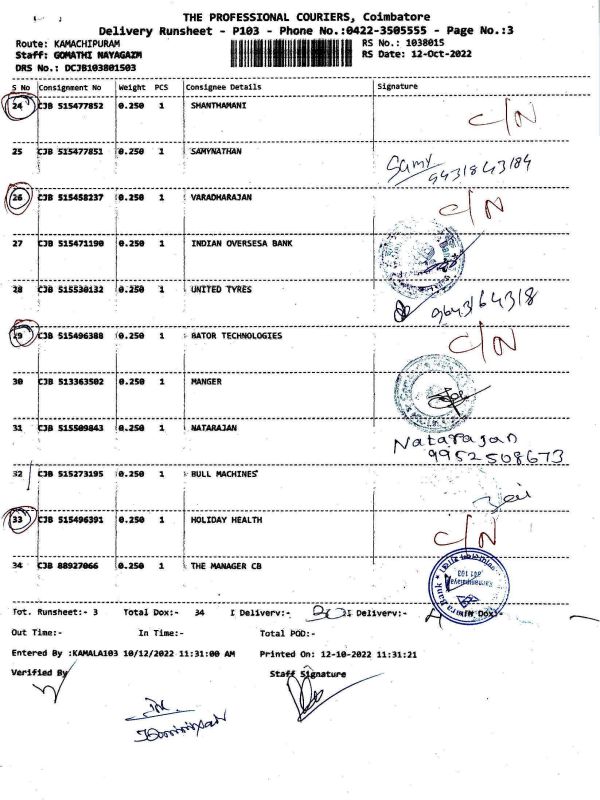 THE PROFESSIONAL COURIERS, Coimbatore
Delivery Runsheet - P103 - Phone No.:0422-3505555 - Page No.:3
Route: KAMACHIPURAM RS No.: 1038015
Staff: GOMATHI NAYAGAIM RS Date: 12-Oct-2022
DRS No.: DCJB103801503
S No Consignment No Weight PCS Consignee Details Signature
24 CJB 515477852 0.250 1 SHANTHAMANI C/N
25 CJB 515477851 0.250 1 SAMYNATHAN Samy
9431843184
26 CJB 515458237 0.250 1 VARADHARAJAN C/N
27 CJB 515471190 0.250 1 INDIAN OVERSESA BANK
28 CJB 515530132 0.250 1 UNITED TYRES 9643164318
29 CJB 515496388 0.250 1 BATOR TECHNOLOGIES C/N
30 CJB 513363502 0.250 1 MANGER
31 CJB 515509843 0.250 1 NATARAJAN Natarajan
9952508673
32 CJB 515273195 0.250 1 BULL MACHINES
33 CJB 515496391 0.250 1 HOLIDAY HEALTH C/N
34 CJB 88927066 0.250 1 THE MANAGER CB
Tot. Runsheet:- 3 Total Dox:- 34 I Delivery:- 30 I Delivery:- N Dox:-
Out Time:- In Time:- Total POD:-
Entered By :KAMALA103 10/12/2022 11:31:00 AM Printed On: 12-10-2022 11:31:21
Verified By Staff Signature